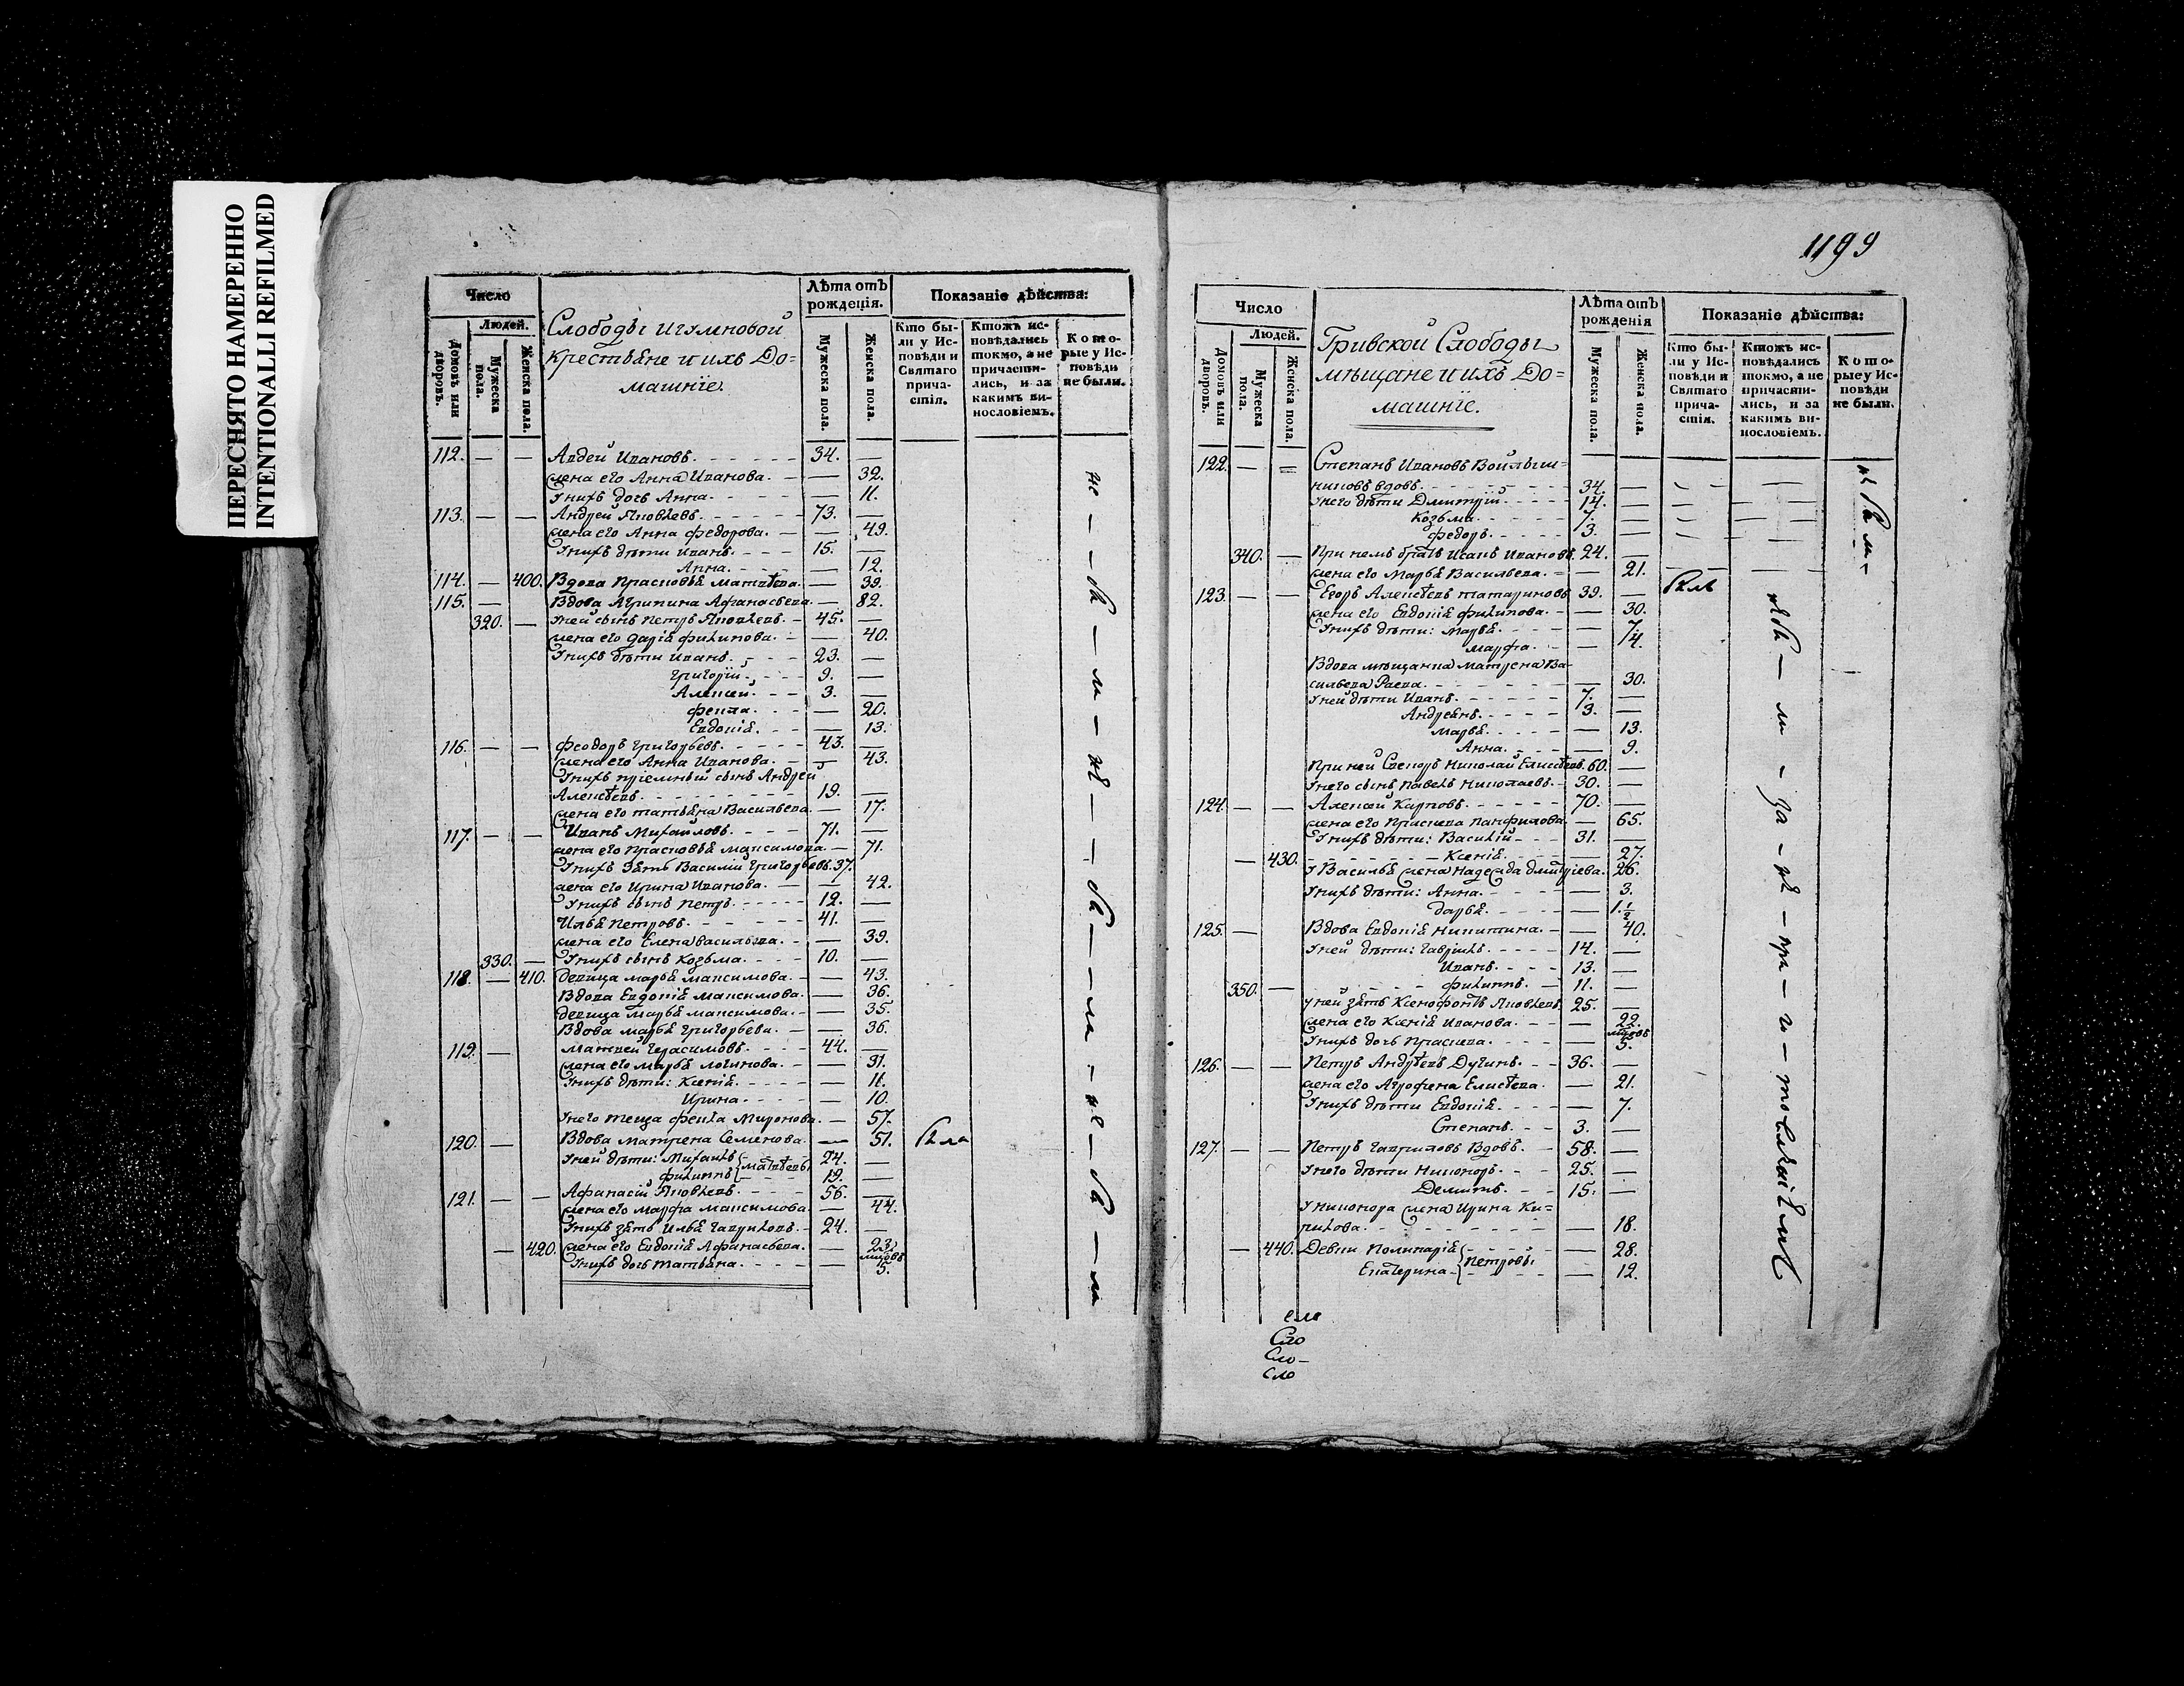 ПЕРЕСНЯТО НАМЕРЕННО
INTENTIONALLI REFILMED
Число
Людей.
Домовъ или дворовъ.
Мужеска пола.
Женска пола.
Слободы Игумновой
крестьяне и ихъ До=
машніе.
Лѣта отъ рожденія.
Мужеска пола.
Женска пола.
Показаніе дѣйства:
Кто бы-
ли у Ис-
повѣди и
Святаго
прича-
стія.
Ктожъ ис-
повѣдались
токмо, а не
причасти-
лись, и за
какимъ ви-
нословіемъ.
Кото-
рые у Ис-
повѣди
не были.
112. — — Авдей Ивановъ. 34. —
жена его Анна Иванова. — 32.
У нихъ дочь Анна. — 11.
113. — — Андрей Яковлевъ. 73. —
жена его Анна Федорова. — 49.
У нихъ дѣти Иванъ. 15. —
Анна. — 12.
114. — 400. Вдова Прасковья Матвѣева. — 39.
115. — Вдова Агрипина Афанасьева. — 82.
320. — У ней сынъ Петръ Яковлевъ. 45. —
жена его Дарія Филипова. — 40.
У нихъ дѣти Иванъ. 23. —
Григорій. 9. —
Алексей. 3. —
Фекла. — 20.
Евдокія. — 13.
116. — — Феодоръ Григорьевъ. 43. —
жена его Анна Иванова. — 43.
У нихъ пріемный сынъ Андрей
Алексѣевъ. 19. —
жена его Татьяна Васильева. — 17.
117. — — Иванъ Михайловъ. 71. —
жена его Прасковья Максимова. — 71.
У нихъ Зять Василій Григорьевъ. 37.
жена его Ирина Иванова. — 42.
У нихъ сынъ Петръ. 12. —
Илья Петровъ. 41. —
жена его Елена Васильева. — 39.
330. — У нихъ сынъ Козьма. 10. —
118. — 410. Девица Марья Максимова. — 43.
Вдова Евдокія Максимова. — 36.
Девица Марья Максимова. — 35.
Вдова Марья Григорьева. — 36.
119. — Матвей Герасимовъ. 44. —
жена его Марья Логинова. — 31.
У нихъ дѣти: Ксенія. — 11.
Ирина. — 10.
У него теща Фекла Миронова. — 57.
120. — Вдова Матрена Семенова. — 51. была
У ней дѣти: Михаилъ 24. —
Филиппъ } Матвѣевы 19. —
121. — — Афанасій Яковлевъ. 56. —
жена его Марфа Максимова — 44.
У нихъ зять Илья Гавриловъ. 24. —
— 420. жена его Евдокія Афанасьева. — 23.
У нихъ дочь Татьяна. — мцовъ 5.
не — бы — ли — не — бы — ли — не — бы — ли
1199
Число
Людей.
Домовъ или дворовъ.
Мужеска пола.
Женска пола.
Гривской Слободы
мѣщане и ихъ До=
машніе.
Лѣта отъ рожденія
Мужеска пола.
Женска пола.
Показаніе дѣйства:
Кто бы-
ли у Ис-
повѣди и
Святаго
прича-
стія.
Ктожъ ис-
повѣдались
токмо, а не
причасти-
лись, и за
какимъ ви-
нословіемъ.
Кото-
рые у Ис-
повѣди
не были.
122. — Степанъ Ивановъ
вдовъ. 34. —
У него дѣти Дмитрій. 14. —
Козьма. 7. —
Федоръ. 3. —
340. — При немъ братъ Исакъ Ивановъ. 24. —
жена его Марья Васильева. — 21.
123. — — Егоръ Алексѣевъ Татариновъ 39. — былъ
жена его Евдокія Филипова. — 30.
У нихъ дѣти: Марья. — 7.
Марфа. — 4.
Вдова мѣщанка Матрена Ва-
сильева Раева. — 30.
У ней дѣти Иванъ. 7. —
Андреянъ. 3. —
Марья. — 13.
Анна. — 9.
При ней Свекоръ Николай Елисѣевъ. 60. —
У него сынъ Павелъ Николаевъ. 30. —
124. — — Алексей Карповъ. 70. —
жена его Праскева Панфилова. — 65.
У нихъ дѣти: Василій. 31. —
— 430. Ксенія. — 27.
У Василья жена Надежда Дмитріева. 26.
У нихъ дѣти: Анна. — 3.
Дарья. — 1. 1/2
125. — Вдова Евдокія Никитина. — 40.
У ней дѣти: Гавріилъ. 14. —
Иванъ. 13. —
350. — Филиппъ. 11. —
У ней зять Ксенофонтъ Яковлевъ. 25. —
жена его Ксенія Иванова. — 22.
У нихъ дочь Праскева. — мцовъ 5.
126. — — Петръ Андрѣевъ Дугинъ. 36. —
жена его Агрофена Елисѣева. — 21.
У нихъ дѣти Евдокія. — 7.
Степанъ. 3. —
127. — — Петръ Гавриловъ Вдовъ. 58. —
У него дѣти Никоноръ. 25. —
Демитъ. 15. —
У Никонора жена Ирина Ки=
рилова. — 18.
— 440. Девки Поликарія — 28.
Екатерина } Петровы — 12.
не бы ли
не бы — ли —
сло
Сло
Сло-
сло